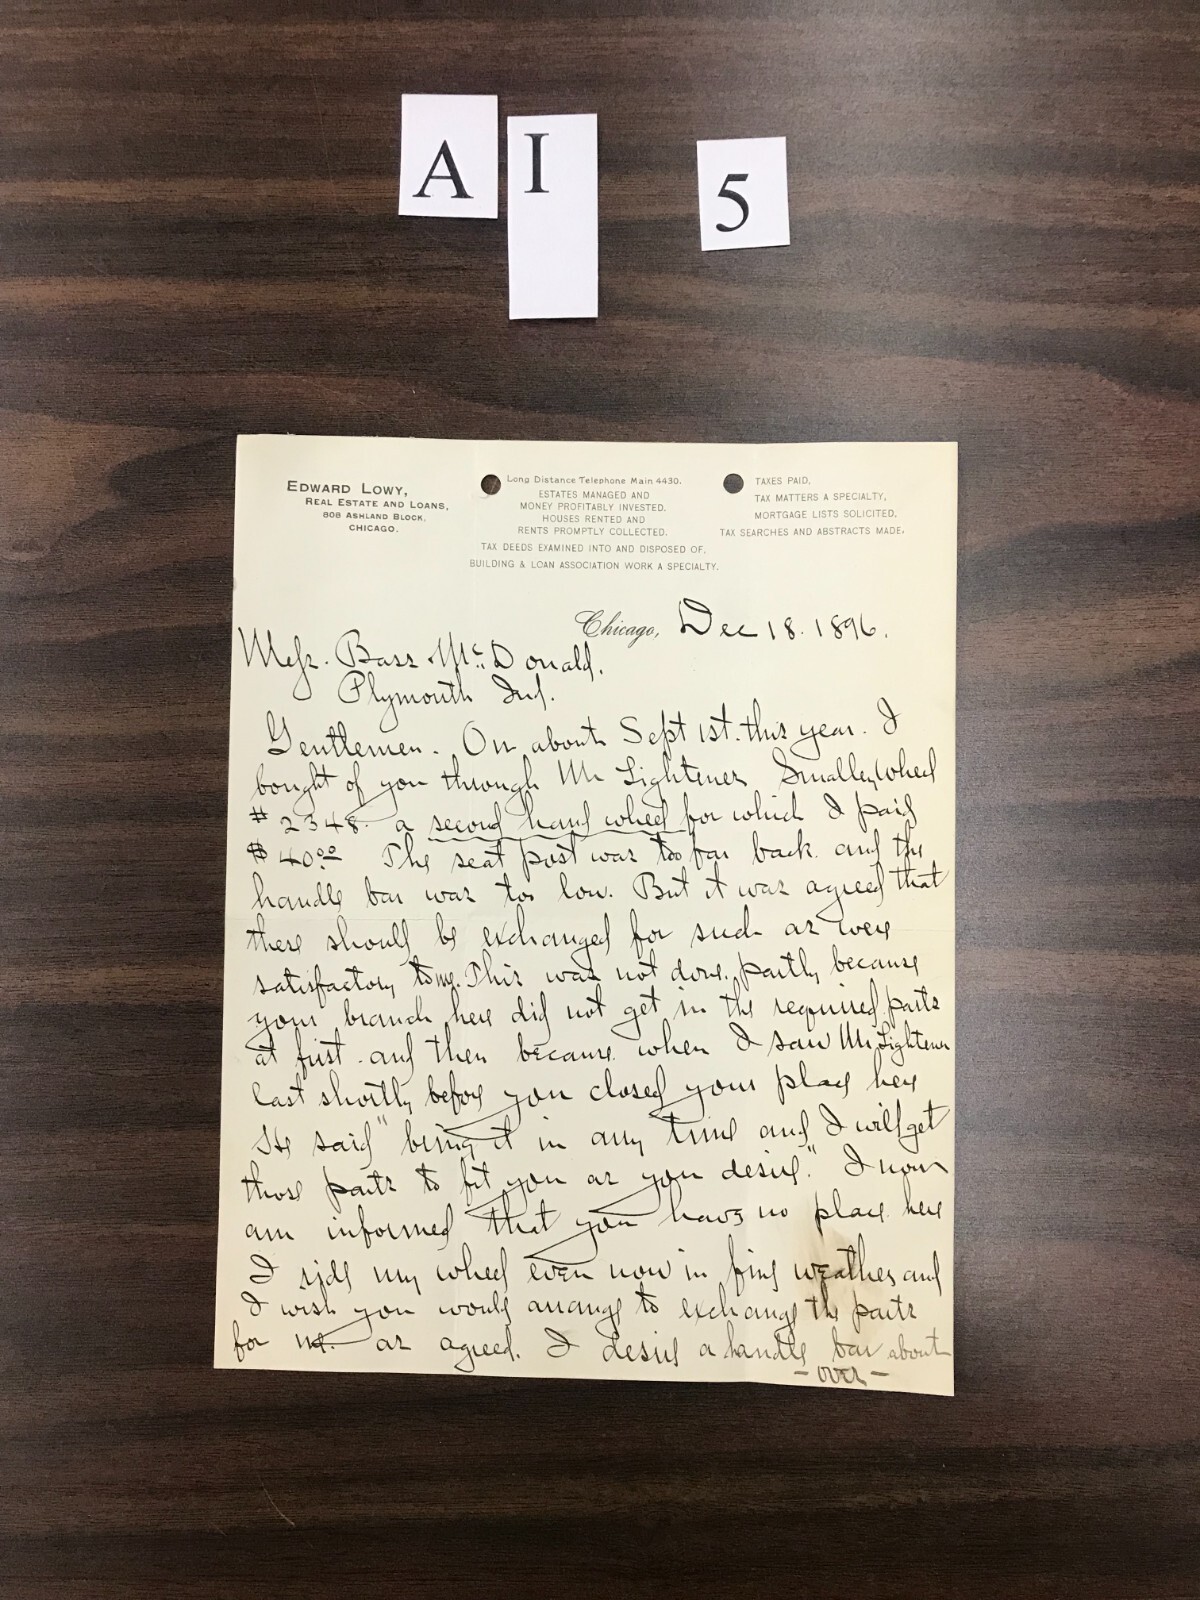 A I 5
EDWARD LOWY,
REAL ESTATE AND LOANS,
808 ASHLAND BLOCK,
CHICAGO.
Long Distance Telephone Main 4430.
ESTATES MANAGED AND
MONEY PROFITABLY INVESTED.
HOUSES RENTED AND
RENTS PROMPTLY COLLECTED.
TAX DEEDS EXAMINED INTO AND DISPOSED OF.
BUILDING & LOAN ASSOCIATION WORK A SPECIALTY.
TAXES PAID,
TAX MATTERS A SPECIALTY,
MORTGAGE LISTS SOLICITED,
TAX SEARCHES AND ABSTRACTS MADE.
Chicago, Dec 18. 1896.
Messr. Bass & McDonald.
Plymouth Ind.
Gentlemen. On about Sept 1st. this year. I
bought of you through Mr Lightener Smalley Wheel
# 2348. a second hand wheel for which I paid
$40.00 The seat post was too far back and the
handle bar was too low. But it was agreed that
these should be exchanged for such as were
satisfactory to me. This was not done. partly because
your branch here did not get in the required parts
at first. and then because when I saw Mr Lightener
last shortly before you closed your place here
He said "bring it in any time and I will get
those parts to fit you as you desire." I now
am informed that you have no place here
I ride my wheel even now in fine weather and
I wish you would arrange to exchange the parts
for me as agreed. I desire a handle bar about
- over -